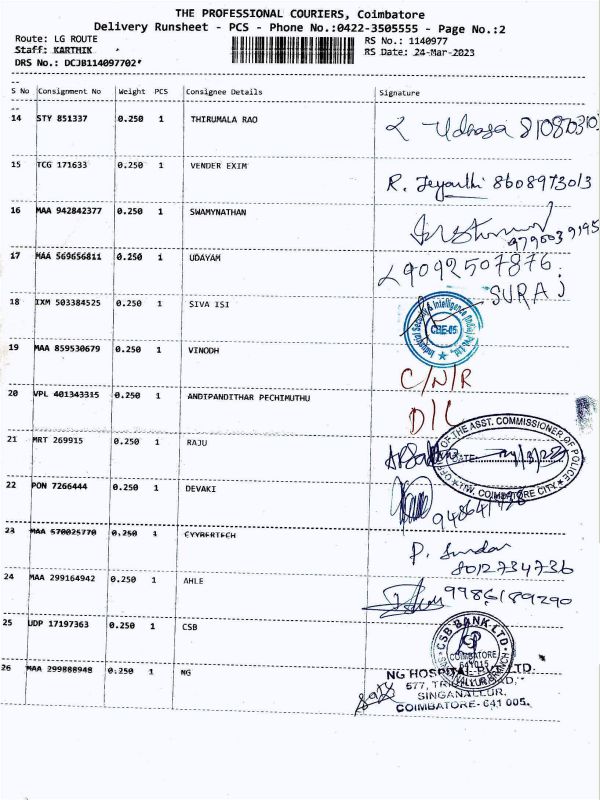 THE PROFESSIONAL COURIERS, Coimbatore
Delivery Runsheet - PCS - Phone No.:0422-3505555 - Page No.:2
Route: LG ROUTE
RS No.: 1140977
Staff: KARTHIK
RS Date: 24-Mar-2023
DRS No.: DCJB114097702*
S No Consignment No Weight PCS Consignee Details Signature
14 STY 851337 0.250 1 THIRUMALA RAO
15 TCG 171633 0.250 1 VENDER EXIM R. Jeyanthi 8608973013
16 MAA 942842377 0.250 1 SWAMYNATHAN
17 MAA 569656811 0.250 1 UDAYAM 9092507876
SURAJ
18 IXM 503384525 0.250 1 SIVA ISI
Industrial Security & Intelligence
CBE-05
19 MAA 859530679 0.250 1 VINODH C/N/R
20 VPL 401343315 0.250 1 ANDIPANDITHAR PECHIMUTHU D/L
21 MRT 269915 0.250 1 RAJU
OF THE ASST. COMMISSIONER OF POLICE
COIMBATORE CITY
22 PON 7266444 0.250 1 DEVAKI
23 MAA 570025770 0.250 1 EYYBERTECH P. Sundar
8012734736
24 MAA 299164942 0.250 1 AHLE 9986189290
25 UDP 17197363 0.250 1 CSB
CSB BANK LTD
COIMBATORE
641015
26 MAA 299888948 0.250 1 NG
NG HOSPITAL PVT. LTD.
577, ROAD,
SINGANALLUR,
COIMBATORE- 641 005.